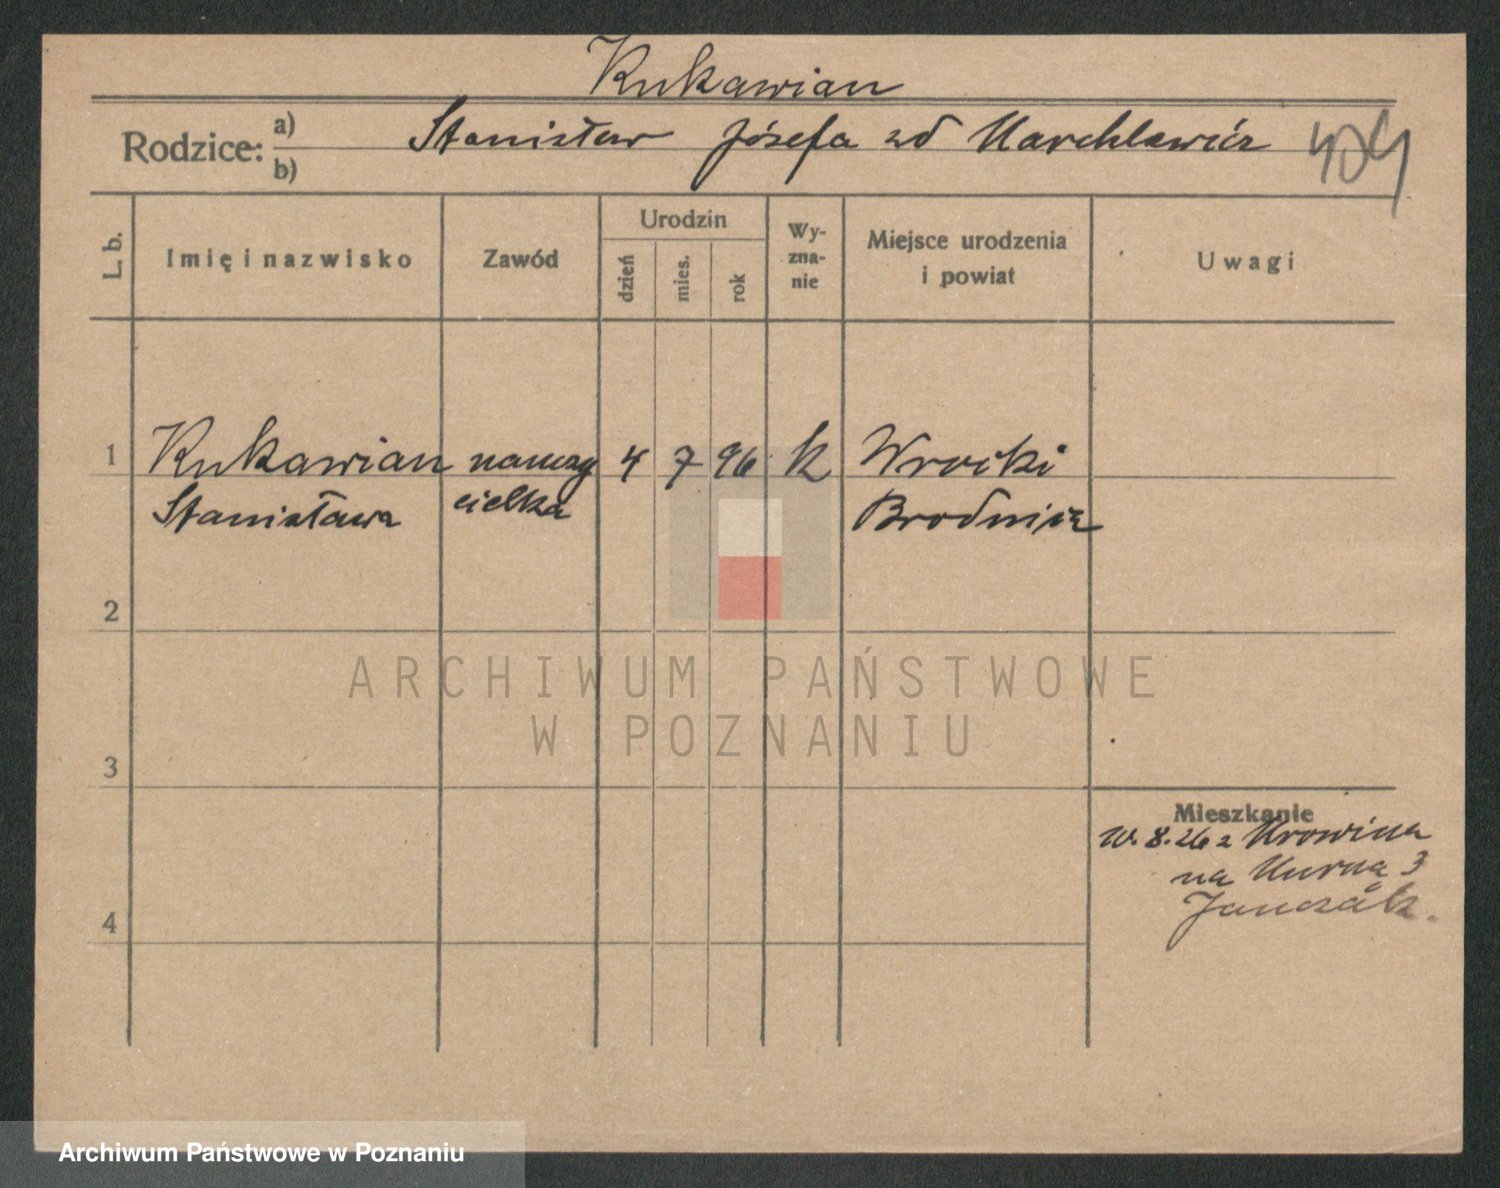 Kukawian
Rodzice: a) b) Stanisław Józefa zd Marchlewicz
404
L. b. Imię i nazwisko Zawód Urodzin dzień mies. rok Wy-zna-nie Miejsce urodzenia i powiat Uwagi
1 Kukawian nauczy 4 7 96 k Wrocki
Stanisława cielka Brodnica
2
3
4
Mieszkanie
10. 8. 26 z
na 3
ARCHIWUM PAŃSTWOWE
W POZNANIU
Archiwum Państwowe w Poznaniu